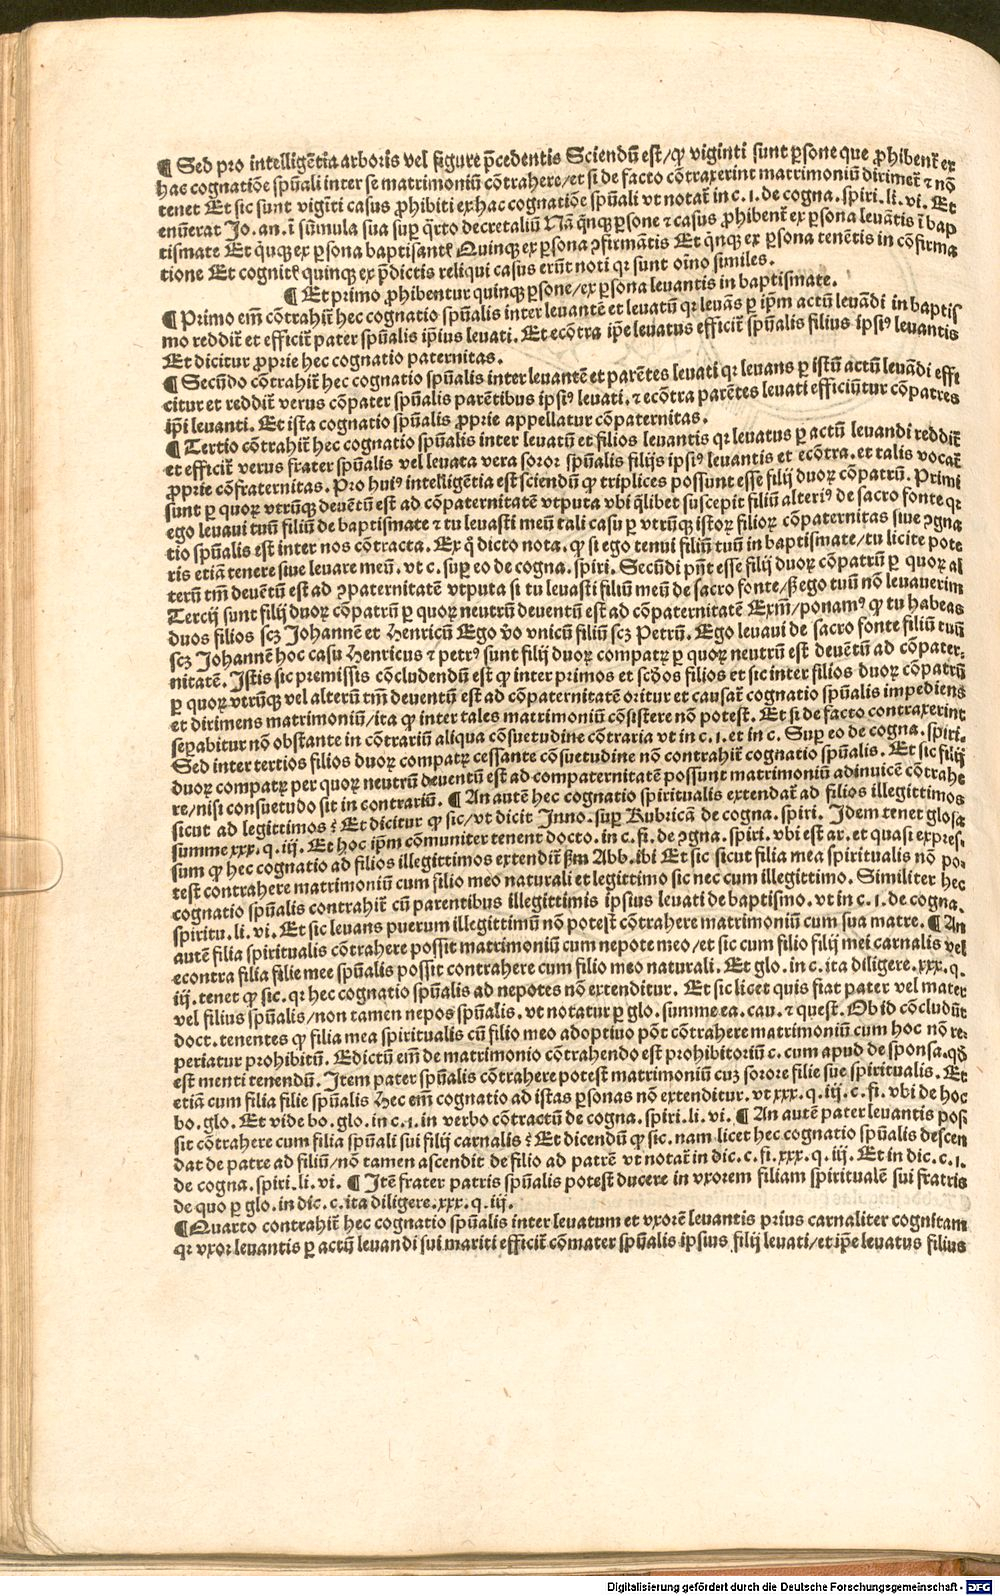 ¶ Sed pro intelligētia arboris vel figure p̄cedentis Sciendū est/ ꝙ viginti sunt ꝑsone que ꝓhibent᷑ ex
hac cognatiōe spūali inter se matrimoniū cōtrahere/et si de facto cōtraxerint matrimoniū dirimēt᷑ ⁊ nō
tenet Et sic sunt viginti casus ꝓhibiti ex hac cognatiōe spūali vt notat᷑ in c. i. de cogna. spiri. li. vi. Et
enūerat Jo. an. ī sūmula sua suꝑ q̄rto decretaliū Nā q̄nqꝫ ꝑsone ⁊ casus ꝓhibent᷑ ex ꝑsona leuātis ī bap
tismate Et q̇nqꝫ ex ꝑsona baptisantꝭ Quinqꝫ ex ꝑsona ꝯfirmātis Et q̇nqꝫ ex ꝑsona tenētis in cōfirma
tione Et cognitꝭ quinqꝫ ex p̄dictis reliqui casus erūt noti qꝛ sunt oīno similes.
¶ Et primo ꝓhibentur quinqꝫ ꝑsone/ex ꝑsona leuantis in baptismate.
¶ Primo em̄ cōtrahit᷑ hec cognatio spūalis inter leuantē et leuatū qꝛ leuās ꝑ ip̄m actū leuādi in baptis
mo reddit᷑ et efficit᷑ pater spūalis ip̄ius leuati. Et ecōtra ip̄e leuatus efficit᷑ spūalis filius ipsiꝰ leuantis
Et dicitur ꝓprie hec cognatio paternitas.
¶ Secūdo cōtrahit᷑ hec cognatio spūalis inter leuantē et parētes leuati qꝛ leuans ꝑ istū actū leuādi effi
citur et reddit᷑ verus cōpater spūalis parētibus ipsiꝰ leuati. ⁊ ecōtra parētes leuati efficiūtur cōpatres
ip̄i leuanti. Et ista cognatio spūalis ꝓprie appellatur cōpaternitas.
¶ Tertio cōtrahit᷑ hec cognatio spūalis inter leuatū et filios leuantis qꝛ leuatus ꝑ actū leuandi reddit᷑
et efficit᷑ verus frater spūalis vel leuata vera soror spūalis filijs ipsiꝰ leuantis et ecōtra. et talis vocat᷑
ꝓprie cōfraternitas. Pro huiꝰ intelligentia est sciendū ꝙ triplices possunt esse filij duoꝝ cōpatrū. Primi
sunt ꝑ quoꝝ vtrūqꝫ deuētū est ad cōpaternitatē vtputa vbi q̄libet suscepit filiū alteriꝰ de sacro fonte qꝛ
ego leuaui tuū filiū de baptismate ⁊ tu leuasti meū tali casu ꝑ vtrūqꝫ istoꝝ filioꝝ cōpaternitas siue ꝯgna
tio spūalis est inter nos cōtracta. Ex q̊ dicto nota. ꝙ si ego tenui filiū tuū in baptismate/tu licite pote
ris etiā tenere siue leuare meū. vt c. suꝑ eo de cogna. spiri. Secūdi pn̄t esse filij duoꝝ cōpatrū ꝑ quoꝝ al
terū tm̄ deuētū est ad ꝯpaternitatē vtputa si tu leuasti filiū meū de sacro fonte/ꝫ ego tuū nō leuauerim
Tercij sunt filij duoꝝ cōpatrū ꝑ quoꝝ neutrū deuentū est ad cōpaternitatē Exm̄/ponamꝰ ꝙ tu habeas
duos filios scꝫ Johannē et Henricū Ego v̊o vnicū filiū scꝫ Petrū. Ego leuaui de sacro fonte filiū tuū
scꝫ Johannē hoc casu Henricus ⁊ petrꝰ sunt filij duoꝝ compatꝝ ꝑ quoꝝ neutrū est deuētū ad cōpater⸗
nitatē. Istis sic premissis cōcludendū est ꝙ inter primos et scd̊os filios et sic inter filios duoꝝ cōpatrū
ꝑ quoꝝ vtrūqꝫ vel alterū tm̄ deuentū est ad cōpaternitatē oritur et causat᷑ cognatio spūalis impediens
et dirimens matrimoniū/ita ꝙ inter tales matrimoniū cōsistere nō potest. Et si de facto contraxerint
seꝑabitur nō obstante in cōtrariū aliqua cōsuetudine cōtraria vt in c. i. et in c. Suꝑ eo de cogna. spiri.
Sed inter tertios filios duoꝝ compatꝝ cessante cōsuetudine nō contrahit᷑ cognatio spūalis. Et sic filij
duoꝝ compatꝝ per quoꝝ neutrū deuentū est ad compaternitatē possunt matrimoniū adinuicē cōtrahe
re/nisi consuetudo sit in contrariū. ¶ An autē hec cognatio spiritualis extendat᷑ ad filios illegittimos
sicut ad legittimos? Et dicitur ꝙ sic/vt dicit Inno. suꝑ Rubricā de cogna. spiri. Idem tenet glosa
summe xxx. q. iij. Et hoc ip̄m cōmuniter tenent docto. in c. fi. de ꝯgna. spiri. vbi est ar. et quasi expres⸗
sum ꝙ hec cognatio ad filios illegittimos extendit᷑ ẜm Abb. ibi Et sic sicut filia mea spiritualis nō po⸗
test contrahere matrimoniū cum filio meo naturali et legittimo sic nec cum illegittimo. Similiter hec
cognatio spūalis contrahit᷑ cū parentibus illegittimis ipsius leuati de baptismo. vt in c. i. de cogna.
spiritu. li. vi. Et sic leuans puerum illegittimū nō potest cōtrahere matrimoniū cum sua matre. ¶ An
autē filia spiritualis cōtrahere possit matrimoniū cum nepote meo/et sic cum filio filij mei carnalis vel
econtra filia filie mee spūalis possit contrahere cum filio meo naturali. Et glo. in c. ita diligere. xxx. q.
iij. tenet ꝙ sic. qꝛ hec cognatio spūalis ad nepotes nō extenditur. Et sic licet quis fiat pater vel mater
vel filius spūalis/non tamen nepos spūalis. vt notatur ꝑ glo. summe ea. cau. ⁊ quest. Ob id cōcludūt
doct. tenentes ꝙ filia mea spiritualis cū filio meo adoptiuo pōt cōtrahere matrimoniū cum hoc nō re⸗
periatur prohibitū. Edictū em̄ de matrimonio cōtrahendo est prohibitoriū c. cum apud de sponsa. qd̄
est menti tenendū. Item pater spūalis cōtrahere potest matrimoniū cuꝫ sorore filie sue spiritualis. Et
etiā cum filia filie spūalis Hec em̄ cognatio ad istas ꝑsonas nō extenditur. vt xxx. q. iij. c. fi. vbi de hoc
bo. glo. Et vide bo. glo. in c. i. in verbo cōtractū de cogna. spiri. li. vi. ¶ An autē pater leuantis pos
sit cōtrahere cum filia spūali sui filij carnalis? Et dicendū ꝙ sic. nam licet hec cognatio spūalis descen
dat de patre ad filiū/nō tamen ascendit de filio ad patrē vt notat᷑ in dic. c. fi. xxx. q. iij. Et in dic. c. i.
de cogna. spiri. li. vi. ¶ Itē frater patris spūalis potest ducere in vxorem filiam spiritualē sui fratris
de quo ꝑ glo. in dic. c. ita diligere. xxx. q. iij.
¶ Quarto contrahit᷑ hec cognatio spūalis inter leuatum et vxorē leuantis prius carnaliter cognitam
qꝛ vxor leuantis ꝑ actū leuandi sui mariti efficit᷑ cōmater spūalis ipsius filij leuati/et ip̄e leuatus filius
Digitalisierung gefördert durch die Deutsche Forschungsgemeinschaft - DFG